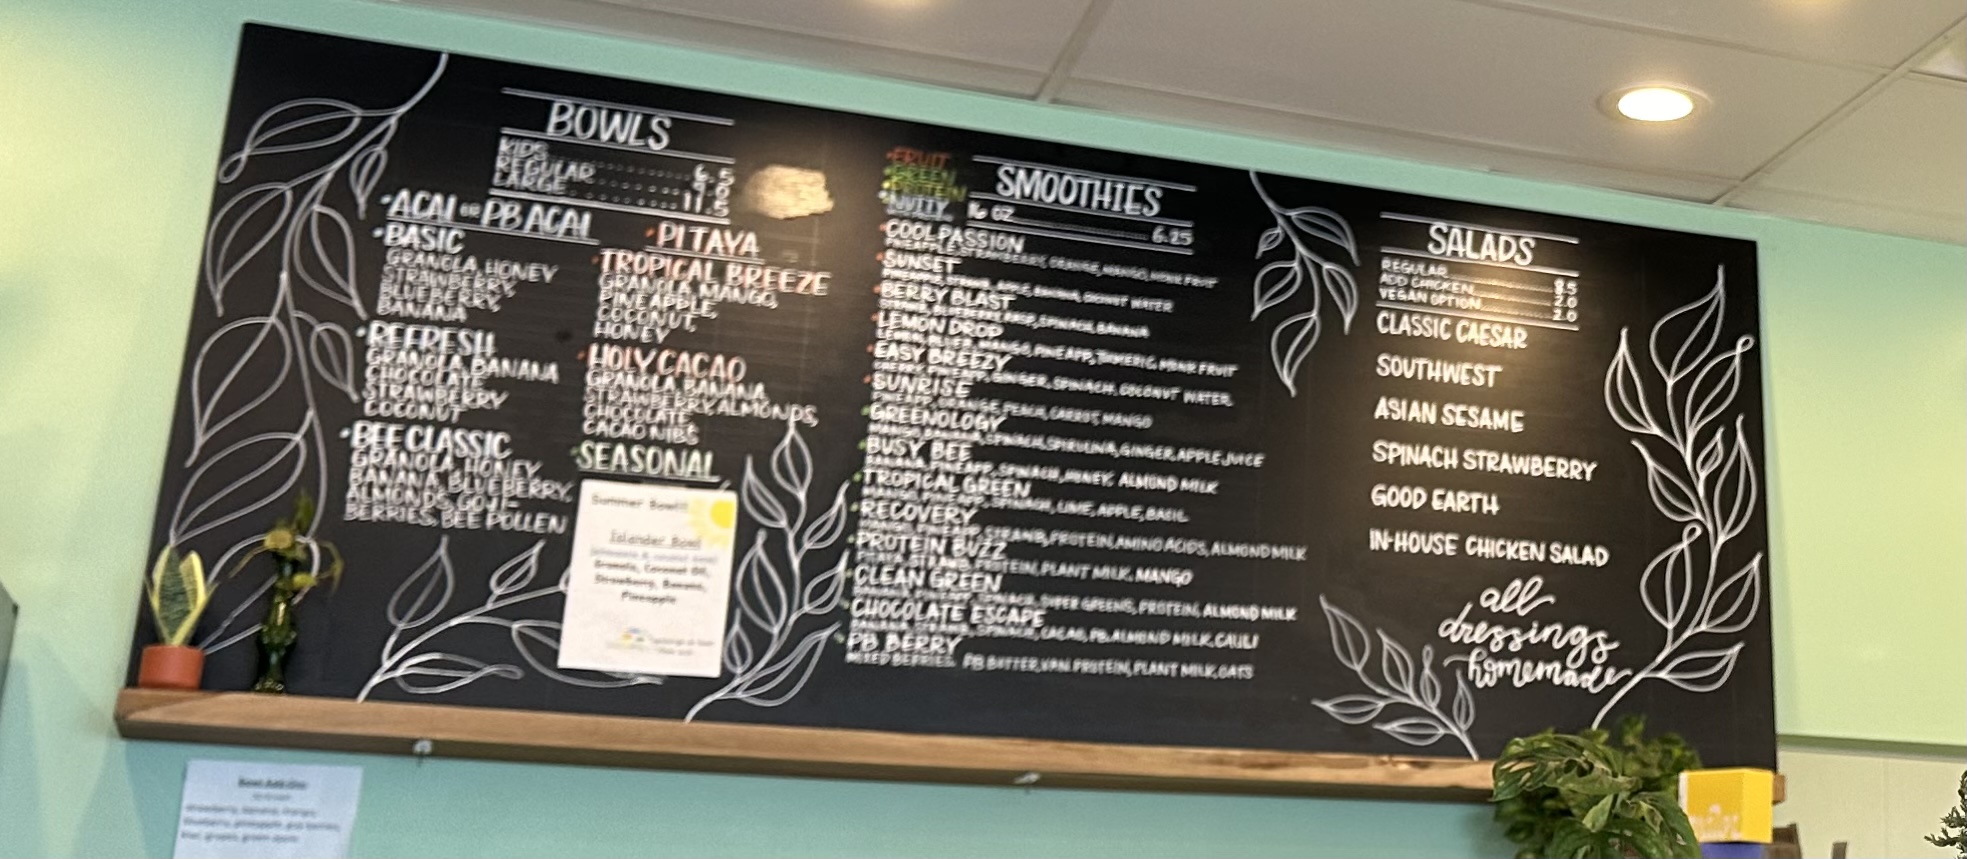 BOWLS
KIDS 6.5
REGULAR 9.0
LARGE 11.5
ACAI OR PB ACAI
BASIC
GRANOLA, HONEY
STRAWBERRY,
BLUEBERRY,
BANANA
REFRESH
GRANOLA, BANANA
CHOCOLATE,
STRAWBERRY
COCONUT
BEE CLASSIC
GRANOLA, HONEY,
BANANA, BLUEBERRY,
ALMONDS, GOJI-
BERRIES, BEE POLLEN
PITAYA
TROPICAL BREEZE
GRANOLA, MANGO,
PINEAPPLE,
COCONUT,
HONEY
HOLY CACAO
GRANOLA, BANANA,
STRAWBERRY, ALMONDS,
CHOCOLATE,
CACAO NIBS
SEASONAL
Summer Bowl!
Islander Bowl
Granola, Coconut Oil,
Strawberry, Banana,
Pineapple
FRUIT
GREEN
PROTEIN
NVTTY
SMOOTHIES
16 OZ 6.25
COOL PASSION
PINEAPPLE, STRAWBERRY, ORANGE, MANGO, MONK FRUIT
SUNSET
PINEAPPLE, STRAWB, APPLE, BANANA, COCONUT WATER
BERRY BLAST
STRAWB, BLUEBERRY, SPINACH, BANANA
LEMON DROP
MANGO, PINEAPP, TURMERIC, MONK FRUIT
EASY BREEZY
CHERRY, PINEAPP, GINGER, SPINACH, COCONUT WATER
SUNRISE
PINEAPP, ORANGE, PEACH, CARROT, MANGO
GREENOLOGY
MANGO, BANANA, SPINACH, SPIRULINA, GINGER, APPLE JUICE
BUSY BEE
BANANA, PINEAPP, SPINACH, HONEY, ALMOND MILK
TROPICAL GREEN
MANGO, PINEAPP, SPINACH, LIME, APPLE, BASIL
RECOVERY
MANGO, PINEAPP, STRAWB, PROTEIN, AMINO ACIDS, ALMOND MILK
PROTEIN BUZZ
STRAWB, PROTEIN, PLANT MILK, MANGO
CLEAN GREEN
BANANA, PINEAPP, SPINACH, SUPER GREENS, PROTEIN, ALMOND MILK
CHOCOLATE ESCAPE
BANANA, STRAWB, SPINACH, CACAO, PB, ALMOND MILK, CAULI
PB BERRY
MIXED BERRIES, PB BUTTER, VAN PROTEIN, PLANT MILK, OATS
SALADS
REGULAR 8.5
ADD CHICKEN 2.0
VEGAN OPTION 2.0
CLASSIC CAESAR
SOUTHWEST
ASIAN SESAME
SPINACH STRAWBERRY
GOOD EARTH
IN-HOUSE CHICKEN SALAD
all
dressings
homemade